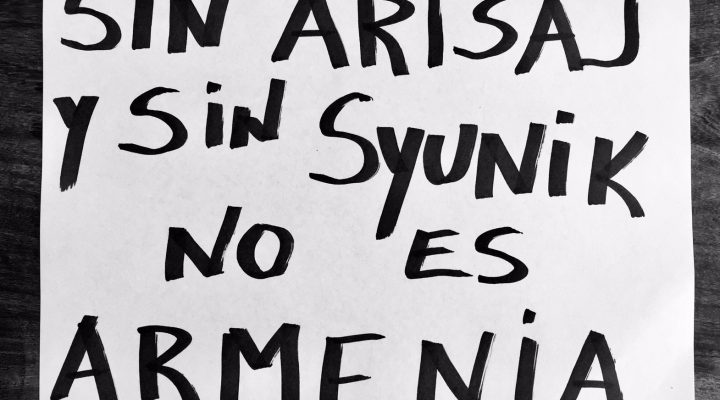 SIN ARTSAJ
Y SIN SYUNIK
NO ES
ARMENIA